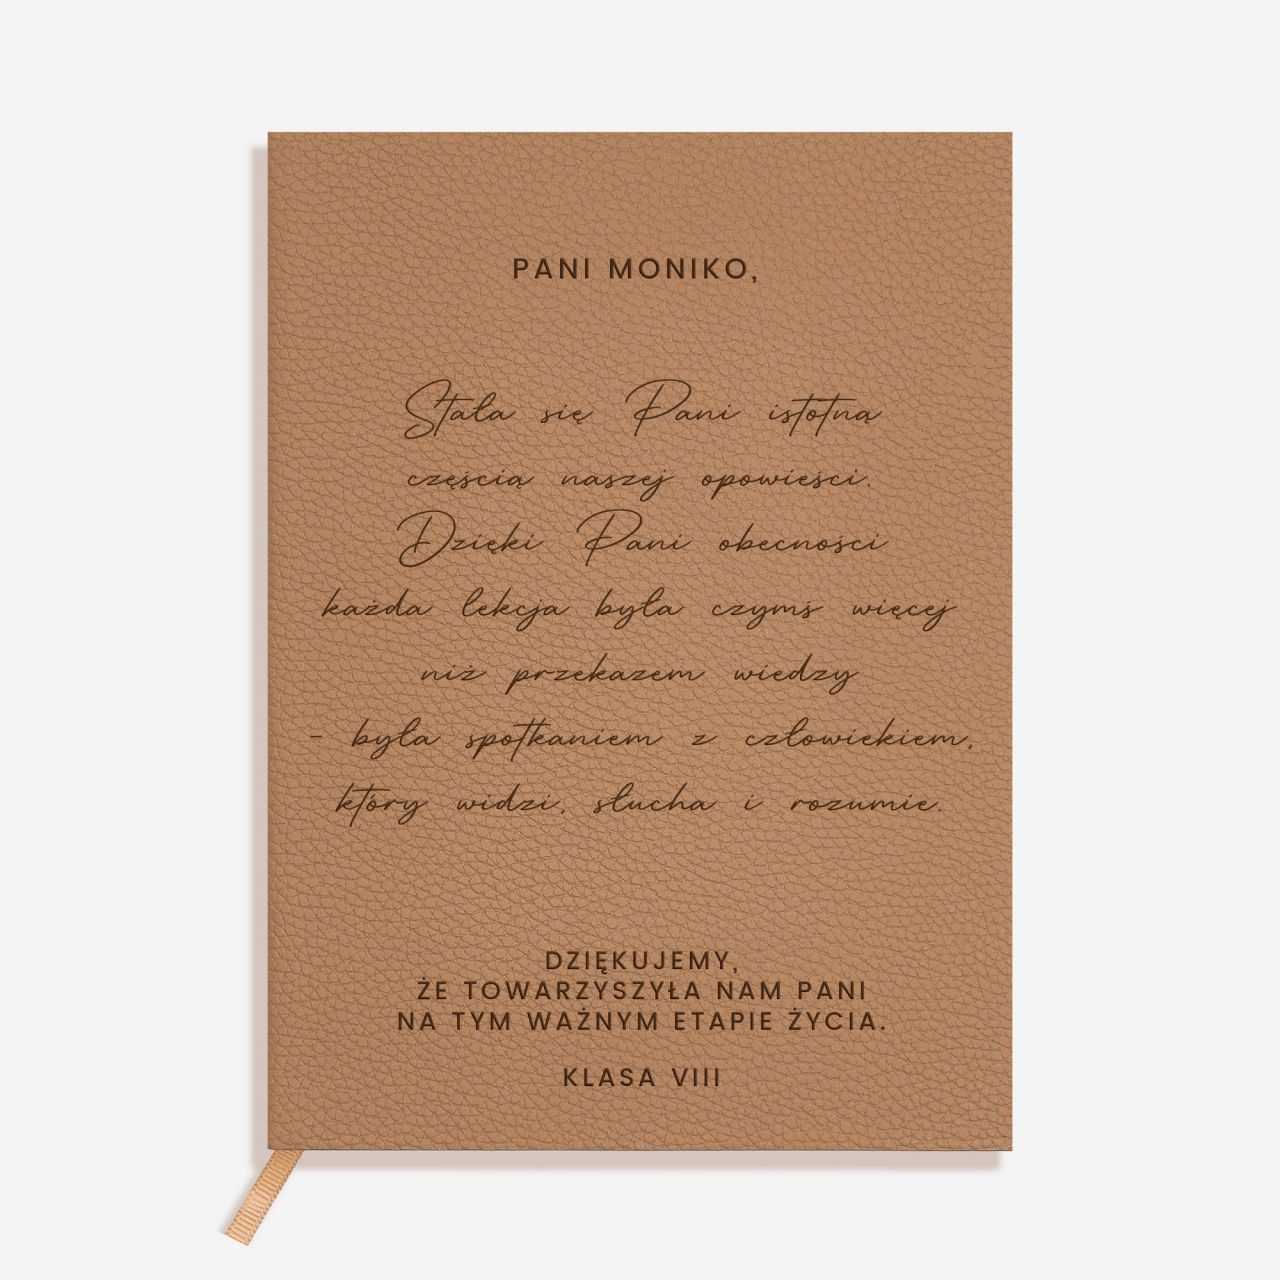 PANI MONIKO,
Stała się Pani istotną
częścią naszej opowieści.
Dzięki Pani obecności
każda lekcja była czymś więcej
niż przekazem wiedzy
- była spotkaniem z człowiekiem,
który widzi, słucha i rozumie.
DZIĘKUJEMY,
ŻE TOWARZYSZYŁA NAM PANI
NA TYM WAŻNYM ETAPIE ŻYCIA.
KLASA VIII